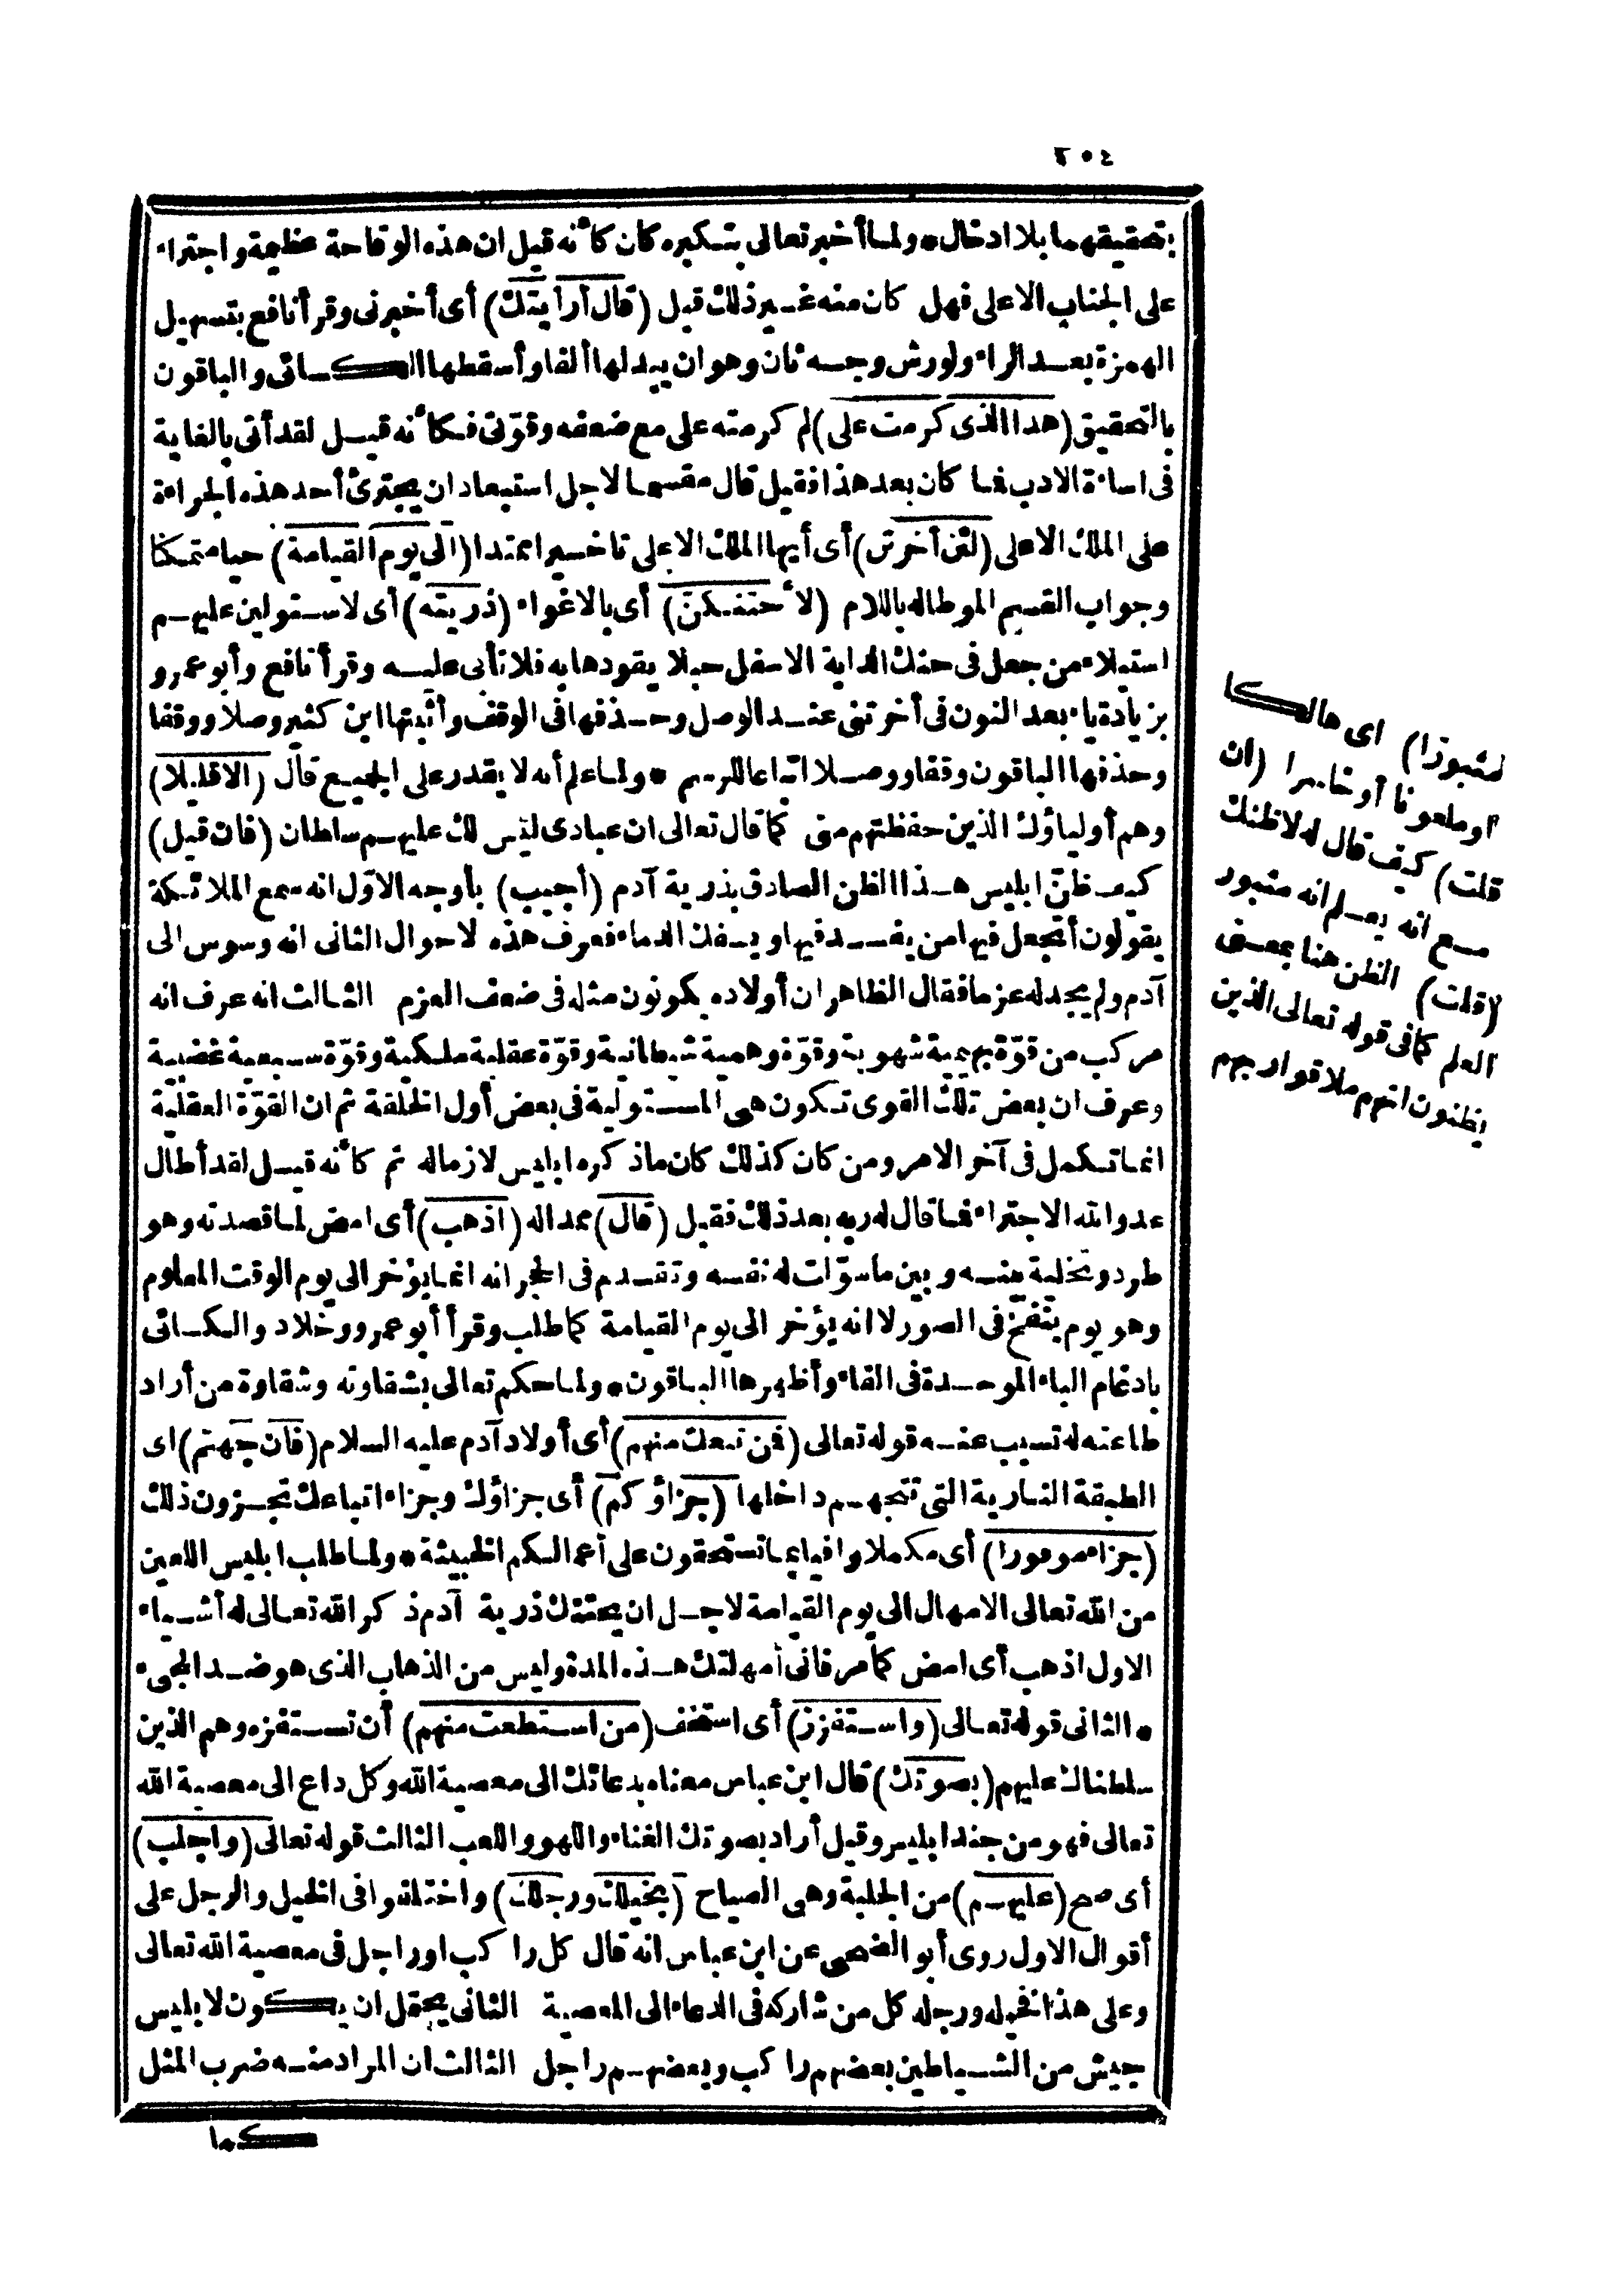 ٣٠٤
بتحقيقهما بلا ادخال * ولما أخبر تعالى بتكبره كان كأنه قيل ان هذه الوقاحة عظيمة واجتراء
على الجناب الاعلى فهل كان منه غير ذلك قيل (قال أرأيتك) أى أخبرنى وقرأ نافع بتسهيل
الهمزة بعد الراء ولورش وجه ثان وهو ان يبدلها ألفا وأسقطها الكسائى والباقون
بالتحقيق (هذا الذى كرمت على) لم كرمته على مع ضعفه وقوّتى فكأنه قيل لقد أتى بالغاية
فى اساءة الادب فما كان بعد هذا فقيل قال مقسما لاجل استبعاد ان يجترئ أحد هذه الجراءة
على الملك الاعلى (لئن أخرتن) أى أيها الملك الاعلى تأخيرا ممتدا (الى يوم القيامة) حيا متمكنا
وجواب القسم الموطا له باللام (لأحتنكنّ) أى بالاغواء (ذريته) أى لاستولين عليهم
استيلاء من جعل فى حنك الدابة الاسفل حبلا يقودها به فلا تأبى عليه وقرأ نافع وأبو عمرو
بزيادة ياء بعد النون فى أخرتنى عند الوصل وحذفها فى الوقف وأثبتها ابن كثير وصلا ووقفا
وحذفها الباقون وقفا ووصلا اتباعا للرسم * ولما علم أنه لا يقدر على الجميع قال (الا قليلا)
وهم أولياؤك الذين حفظتهم منى كما قال تعالى ان عبادى ليس لك عليهم سلطان (فان قيل)
كيف ظنّ ابليس هذا الظن الصادق بذرية آدم (أجيب) بأوجه الاوّل انه سمع الملائكة
يقولون أتجعل فيها من يفسد فيها ويسفك الدماء فعرف هذه لاحوال الثانى انه وسوس الى
آدم ولم يجد له عزما فقال الظاهر ان أولاده يكونون مثله فى ضعف العزم الثالث انه عرف انه
مركب من قوّة بهيمية شهوية وقوّة وهمية شيطانية وقوّة عقلية ملكية وقوّة سبعية غضبية
وعرف ان بعض تلك القوى تكون هى المستولية فى بعض أول الخلقة ثم ان القوّة العقليّة
انما تكمل فى آخر الامر ومن كان كذلك كان ماذكره ابليس لازما له ثم كأنه قيل لقد أطال
عدو الله الاجتراء فما قال له ربه بعد ذلك فقيل (قال) مهددا له (اذهب) أى امض لما قصدته وهو
طرد وتخلية بينه وبين ما سوّلت له نفسه وتقدم فى الحجر انه انما يؤخر الى يوم الوقت المعلوم
وهو يوم ينفخ فى الصور لا انه يؤخر الى يوم القيامة كما طلب وقرأ أبو عمرو وخلاد والكسائى
بادغام الباء الموحدة فى الفاء وأظهرها الباقون * ولما حكم تعالى بشقاوته وشقاوة من أراد
طاعته له تسبب عنه قوله تعالى (فمن تبعك منهم) أى أولاد آدم عليه السلام (فان جهنم) اى
الطبقة النارية التى تتجهم داخلها (جزاؤكم) أى جزاؤك وجزاء اتباعك تجزون ذلك
(جزاء موفورا) أى مكملا وافيا بما تستحقون على أعمالكم الخبيثة * ولما طلب ابليس اللعين
من الله تعالى الامهال الى يوم القيامة لاجل ان يحتنك ذرية آدم ذكر الله تعالى له أشياء
الاول اذهب أى امض كما مر فانى أمهلتك هذه المدة وليس من الذهاب الذى هو ضد المجىء
* الثانى قوله تعالى (واستفزز) أى استخف (من استطعت منهم) أن تستفزه وهم الذين
سلطناك عليهم (بصوتك) قال ابن عباس معناه بدعائك الى معصية الله وكل داع الى معصية الله
تعالى فهو من جند ابليس وقيل أراد بصوتك الغناء واللهو واللعب الثالث قوله تعالى (واجلب)
أى صح (عليهم) من الجلبة وهى الصياح (بخيلك ورجلك) واختلفوا فى الخيل والرجل على
أقوال الاول روى أبو الضحى عن ابن عباس انه قال كل راكب او راجل فى معصية الله تعالى
وعلى هذا فخيله ورجله كل من شاركه فى الدعاء الى المعصية الثانى يحتمل ان يكون لابليس
جيش من الشياطين بعضهم راكب وبعضهم راجل الثالث ان المراد منه ضرب المثل
كما
لمثبورا) اى هالكا
او ملعونا أو خاسرا (ان
قلت) كيف قال له لاظنك
مع انه يعلم انه مثبور
(قلت) الظن هنا بمعنى
العلم كما فى قوله تعالى الذين
يظنون انهم ملاقوا ربهم